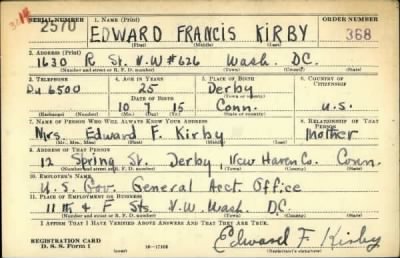 SERIAL NUMBER 1. NAME (Print) ORDER NUMBER
2570 EDWARD FRANCIS KIRBY 368
(First) (Middle) (Last)
2. ADDRESS (Print)
1630 R St. N.W #626 Wash. D.C.
(Number and street or R. F. D. number) (Town) (County) (State)
3. TELEPHONE 4. AGE IN YEARS 5. PLACE OF BIRTH 6. COUNTRY OF CITIZENSHIP
Du 6500 25 Derby
DATE OF BIRTH (Town or county)
10 7 15 Conn. U.S.
(Exchange) (Number) (Mo.) (Day) (Yr.) (State or country)
7. NAME OF PERSON WHO WILL ALWAYS KNOW YOUR ADDRESS 8. RELATIONSHIP OF THAT PERSON
Mrs. Edward F. Kirby Mother
(Mr., Mrs., Miss) (First) (Middle) (Last)
9. ADDRESS OF THAT PERSON
12 Spring St. Derby, New Haven Co. Conn.
(Number and street or R. F. D. number) (Town) (County) (State)
10. EMPLOYER'S NAME
U.S. Gov. General Acct. Office
11. PLACE OF EMPLOYMENT OR BUSINESS
11th & F Sts. N.W. Wash. D.C.
(Number and street or R. F. D. number) (Town) (County) (State)
I AFFIRM THAT I HAVE VERIFIED ABOVE ANSWERS AND THAT THEY ARE TRUE.
REGISTRATION CARD
D. S. S. Form 1 Edward F. Kirby
(Registrant's signature)